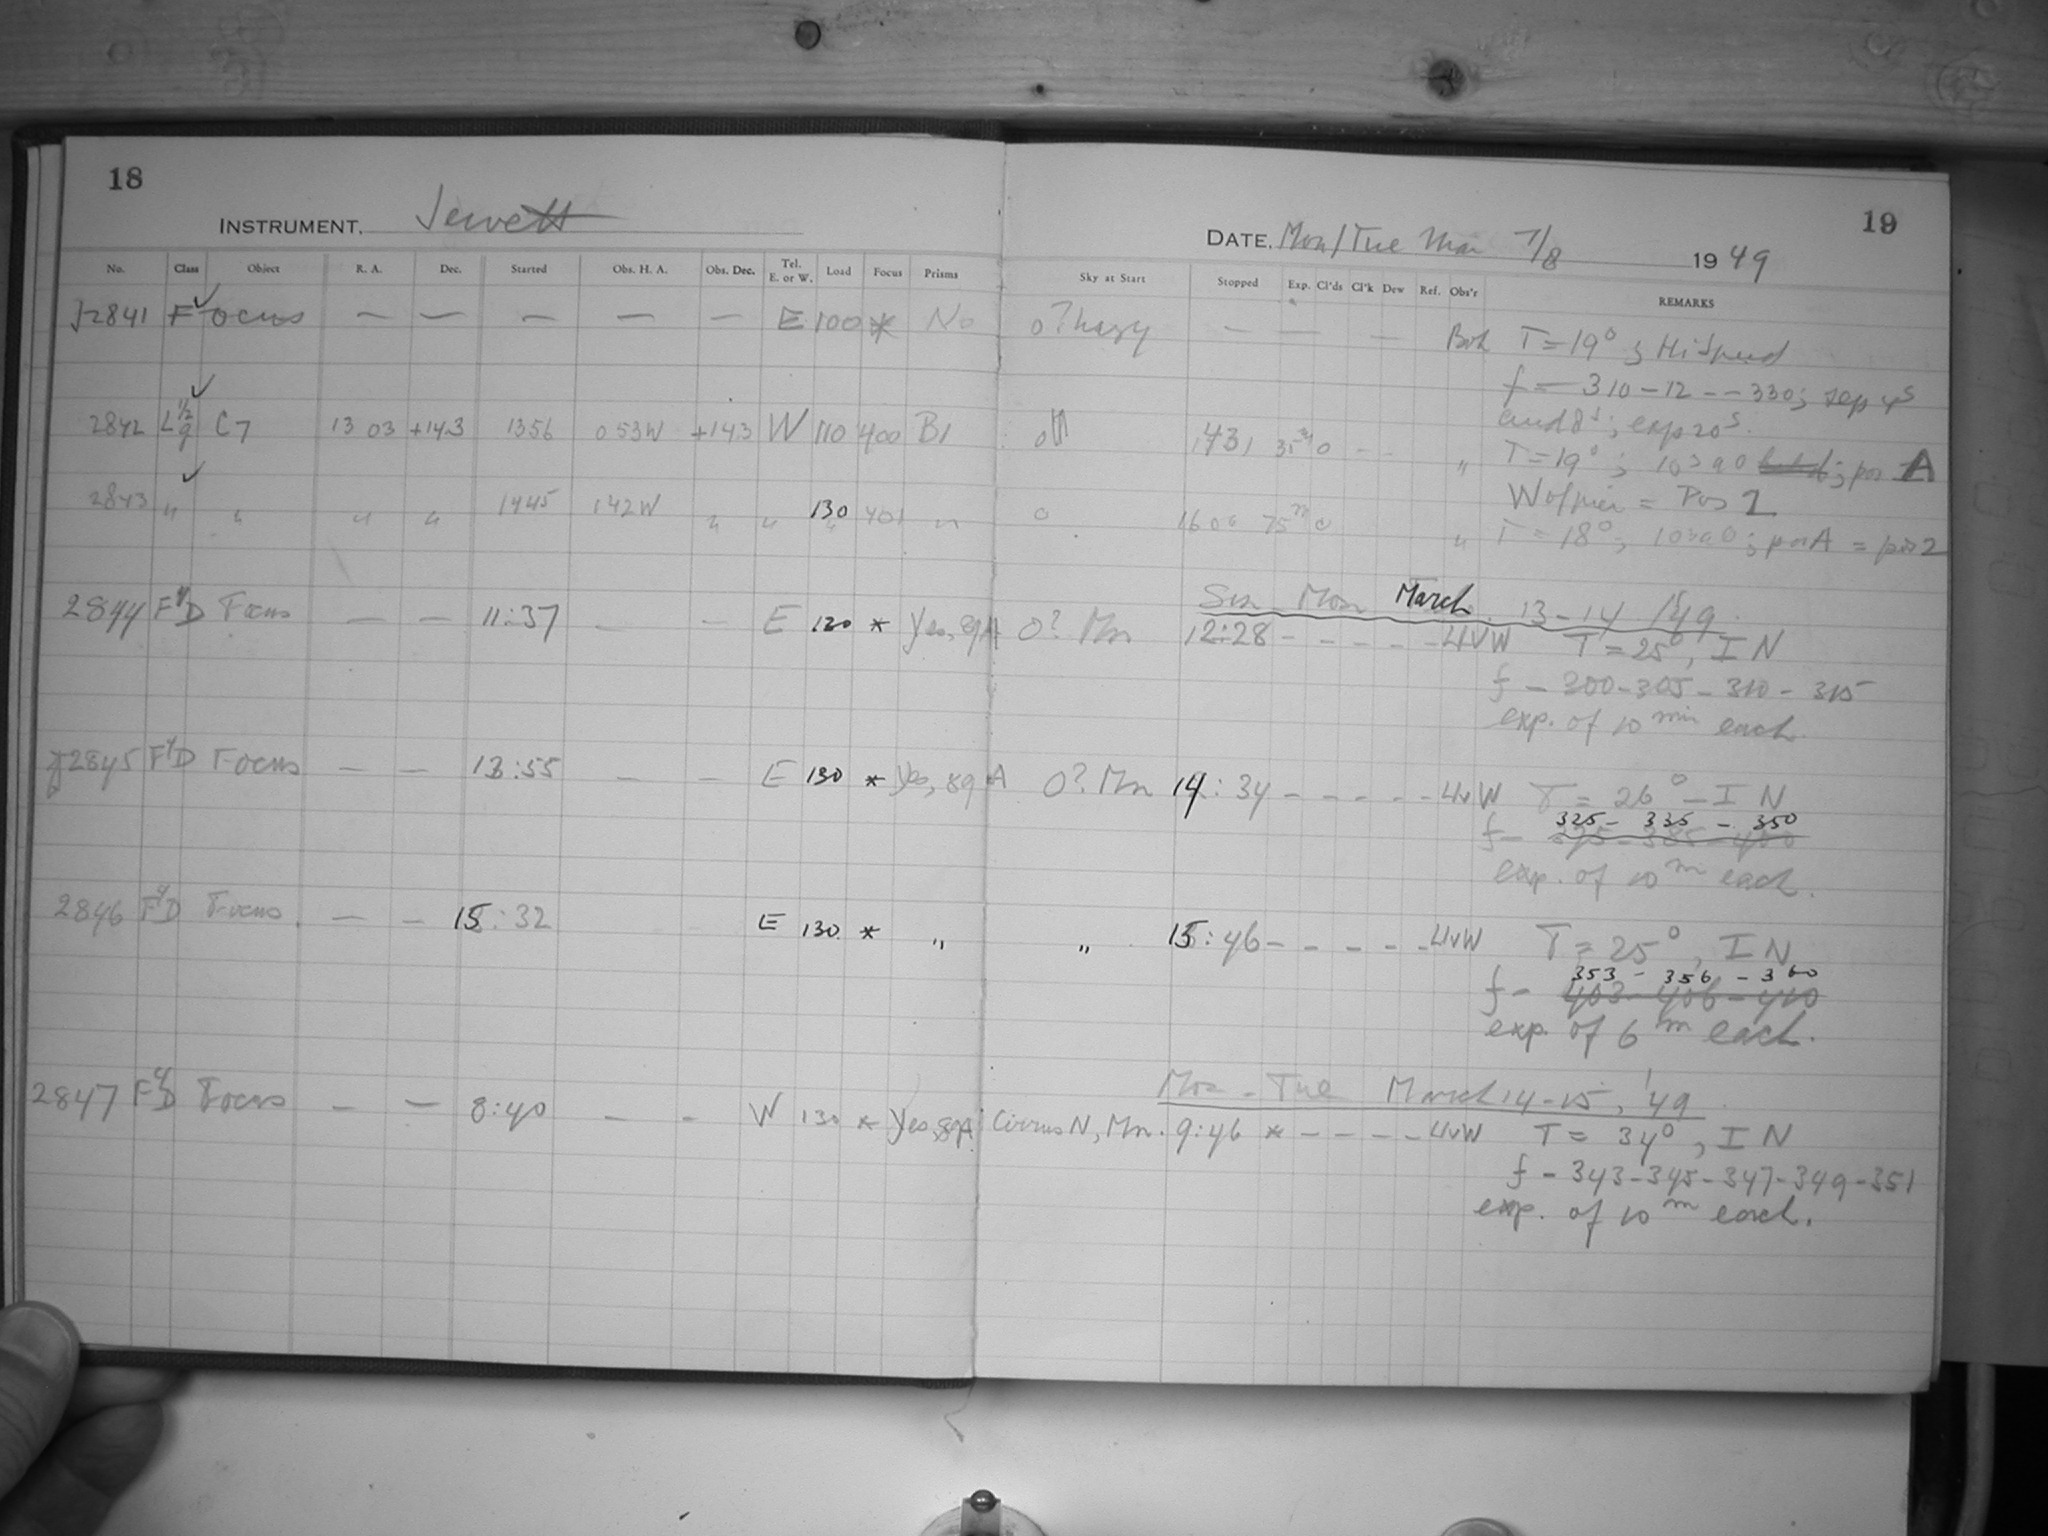 18
INSTRUMENT. Jewett
No. Class Object R. A. Dec. Started Obs. H. A. Obs. Dec. Tel. E. or W. Load Focus Prisms
J2841 F Focus — — — — — E 100 * No
2842 L 1/2 g C7 13 03 +14.3 1356 0 53W +14.3 W 110 400 B1
2843 " " " " 1445 142W " " 130 401 "
2844 F D Focus — — 11:37 — — E 130 * Yes, 8g A
2845 F D Focus — — 13:55 — — E 130 * Yes, 8g A
2846 F D Focus — — 15:32 E 130 * "
2847 F D Focus — — 8:40 — — W 130 * Yes, 8g A
19
DATE. Mon/Tue Mar 7/8 1949
Sky at Start Stopped Exp. Cl'ds Cl'k Dew Ref. Obs'r REMARKS
0? hazy — — — Bok T = 19° ;
f = 310 - 12 -- 330; sep 4s
and 8s; exp 20s.
1431 35 0 - - " T = 19° ; 103a0 ; pos A
W of pier = Pos 2
0 1600 75 0 " T = 18° ; 103a0 ; pos A = pos 2
Sun Mon March 13-14 /49
0? Mn 12:28 - - - - - LHVW T = 25°, I N
f - 300 - 305 - 310 - 315
exp. of 10 min each.
0? Mn 14:34 - - - - - LHVW T = 26° - I N
325 - 335 - 350
f - 375 - 385 - 400
exp. of 10 m each.
" 15:46 - - - - - LHVW T = 25°, I N
353 - 356 - 360
f - 403 - 406 - 410
exp. of 6 m each.
Mon - Tue March 14-15, '49
Cirrus N, Mn. 9:46 * - - - - LHVW T = 34°, I N
f - 343 - 345 - 347 - 349 - 351
exp. of 10 m each.